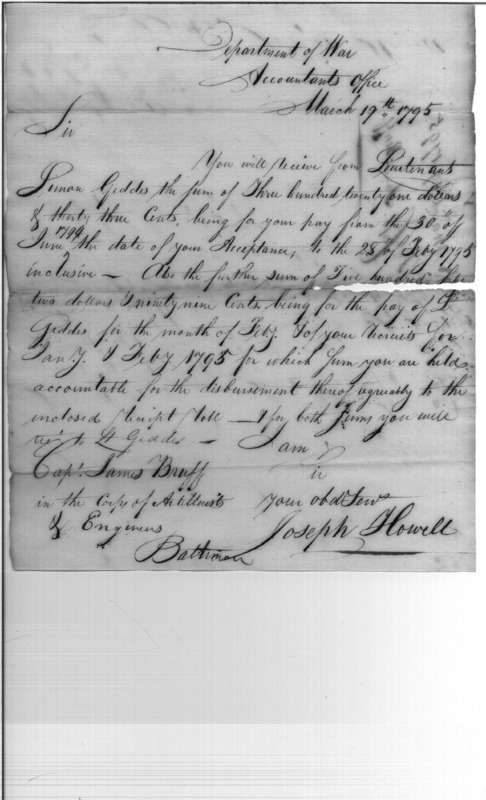 Department of War
Accountants Office
March 19th 1795
Sir
You will receive from Lieutenant
Simon Geddes the sum of Three hundred twenty one dollars
& thirty three Cents, being for your pay from the 30th of
1794
June the date of your Acceptance, to the 28 of Feby 1795
inclusive — Also the further sum of Five hundred
two dollars & ninety nine Cents being for the pay of Lt
Geddes for the month of Feby & of your recruits for
Jany & Feby 1795 for which sum you are held
accountable for the disbursement thereof agreably to the
inclosed receipt roll — & for both sums you will
rect to Lt Geddes — I am
Capt James Bruff
Sir
in the Corps of Artillerists
your obdt Servt
& Engineers
Joseph Howell
Baltimore